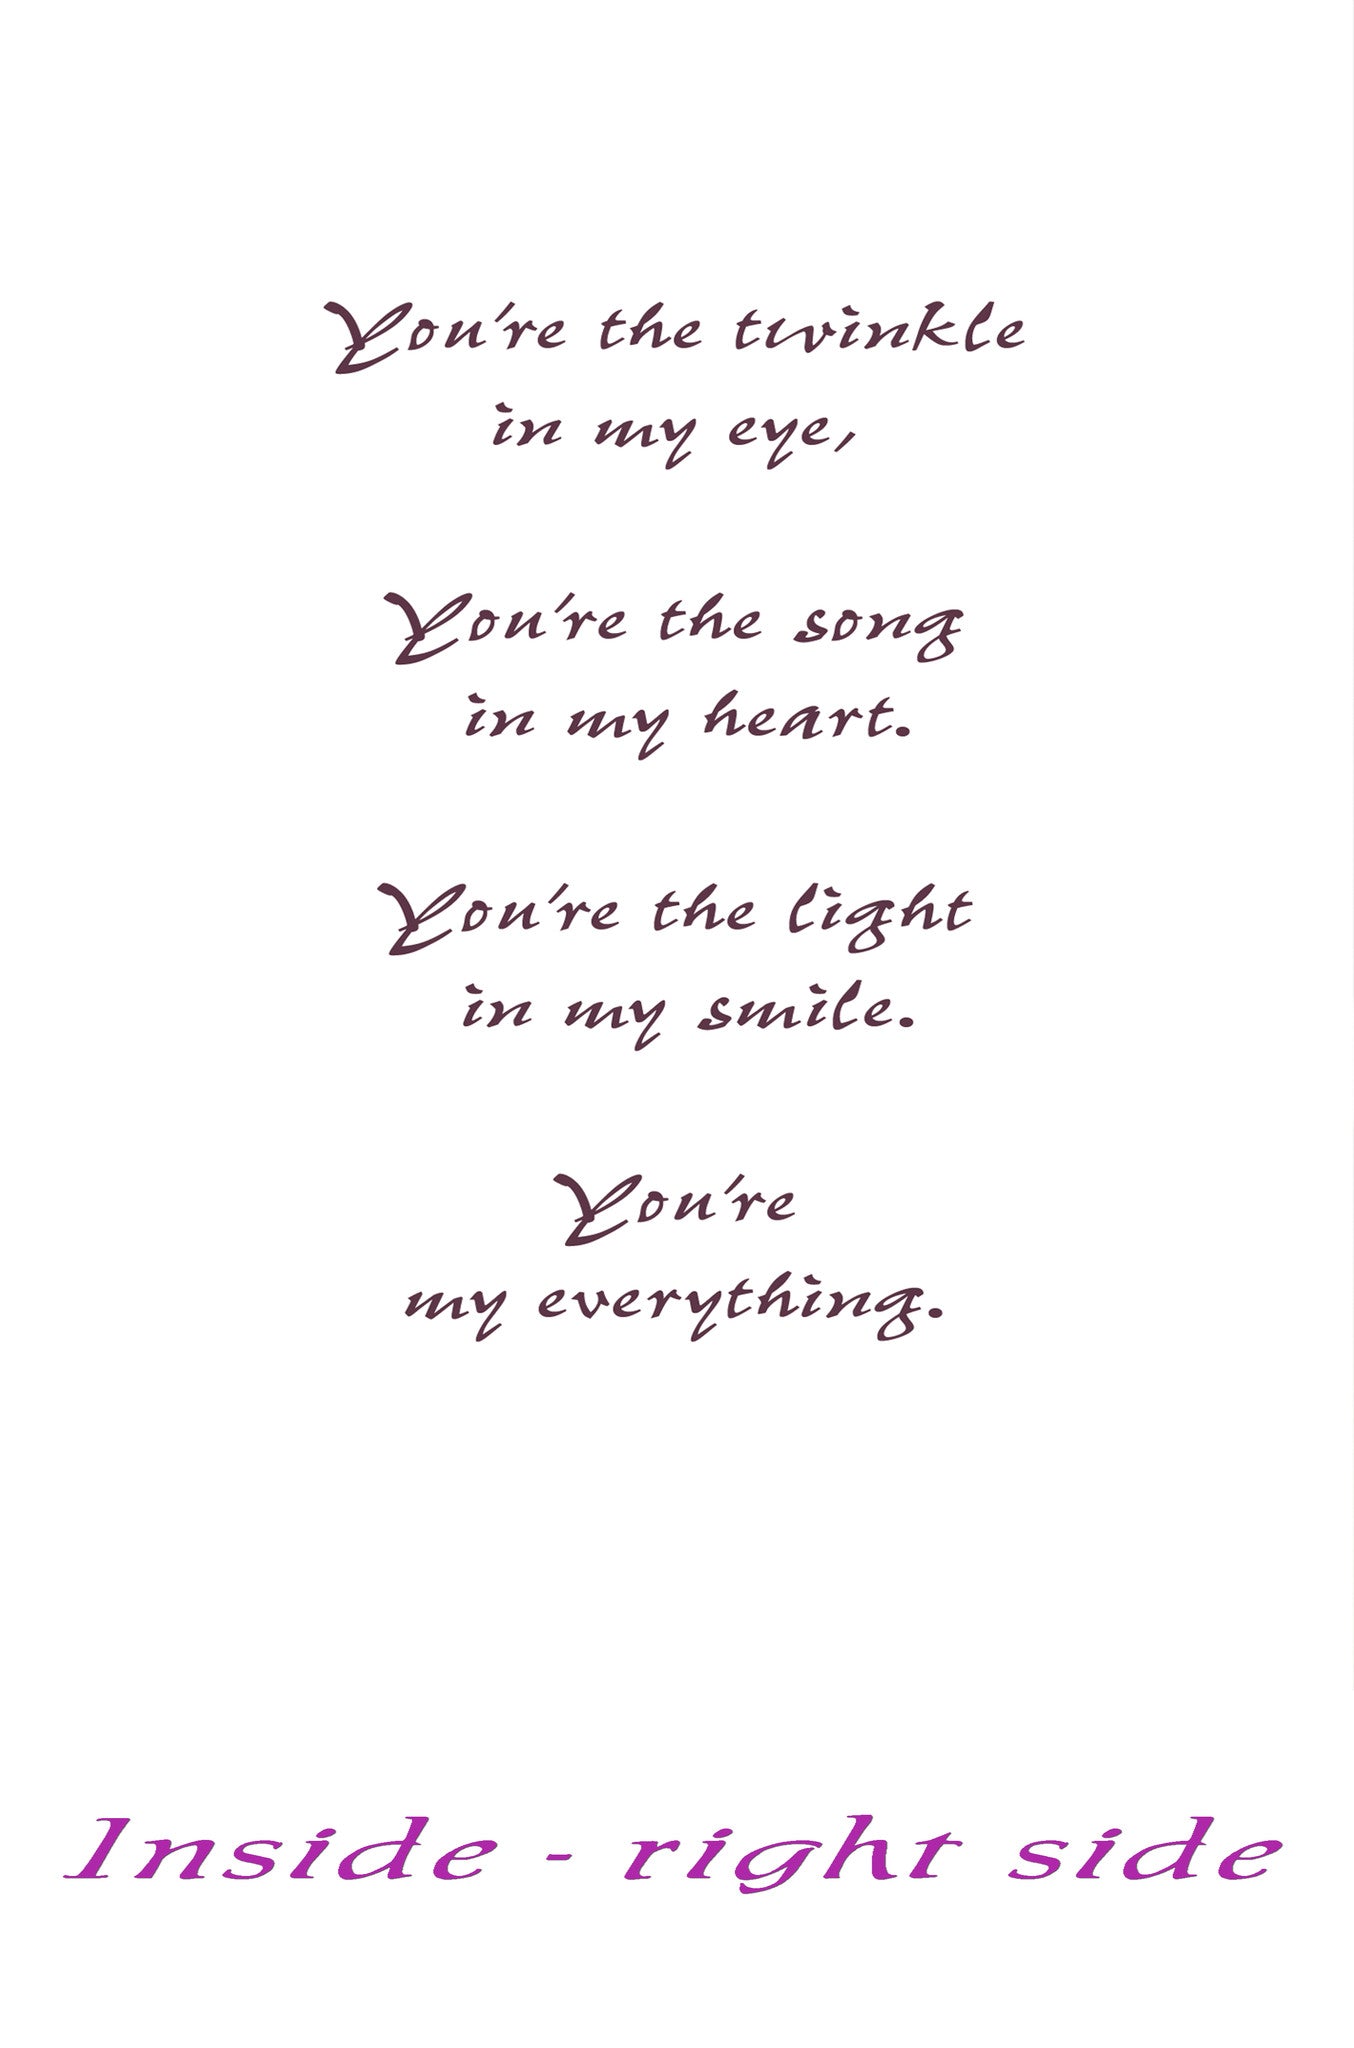 You're the twinkle
in my eye,
You're the song
in my heart.
You're the light
in my smile.
You're
my everything.
Inside - right side